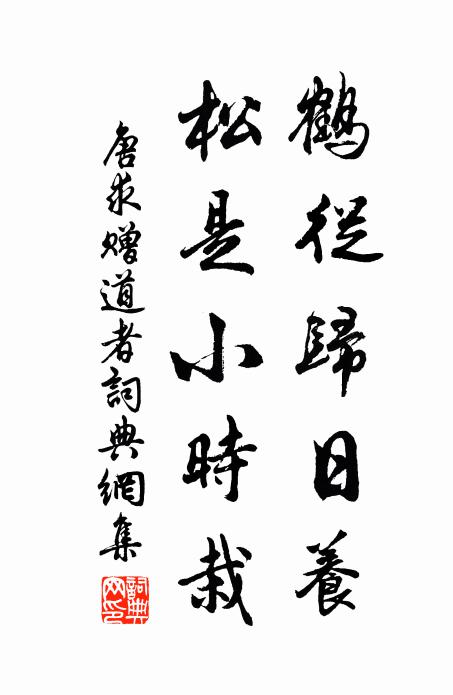 鶴從歸日養
松是小時栽
唐求贈道者詞典網集
詞典
网印